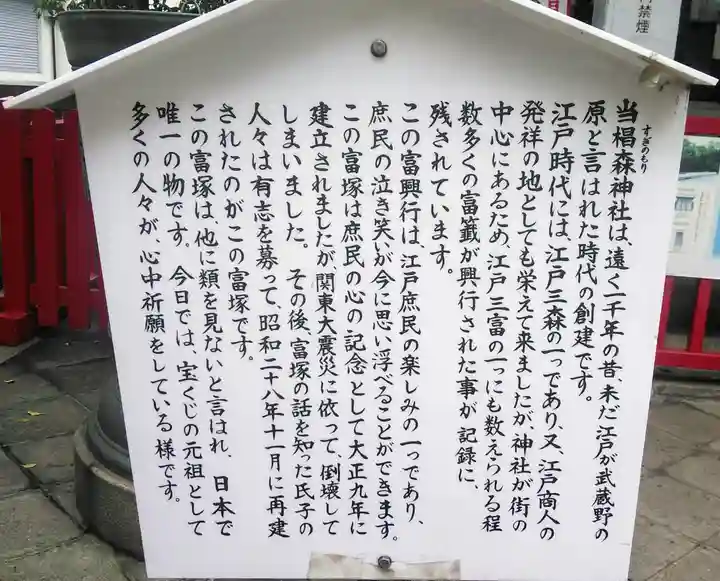 当椙森神社は、遠く一千年の昔、未だ江戸が武蔵野の
すぎのもり
原と言はれた時代の創建です。
江戸時代には、江戸三森の一つであり、又、江戸商人の
発祥の地としても栄えて来ましたが神社が街の
中心にあるため、江戸三富の一つにも数えられる程
数多くの富籤が興行された事が記録に、
残されています。
この富興行は、江戸庶民の楽しみの一つであり、
庶民の泣き笑いが今に思い浮べることができます。
この富塚は庶民の心の記念として大正九年に
建立されましたが関東大震災に依って、倒壊して
しまいました。その後、富塚の話を知った氏子の
人々は有志を募って、昭和二十八年十一月に再建
されたのがこの富塚です。
この富塚は、他に類を見ないと言はれ、日本で
唯一の物です。今日では、宝くじの元祖として
多くの人々が、心中祈願をしている様です。
禁煙